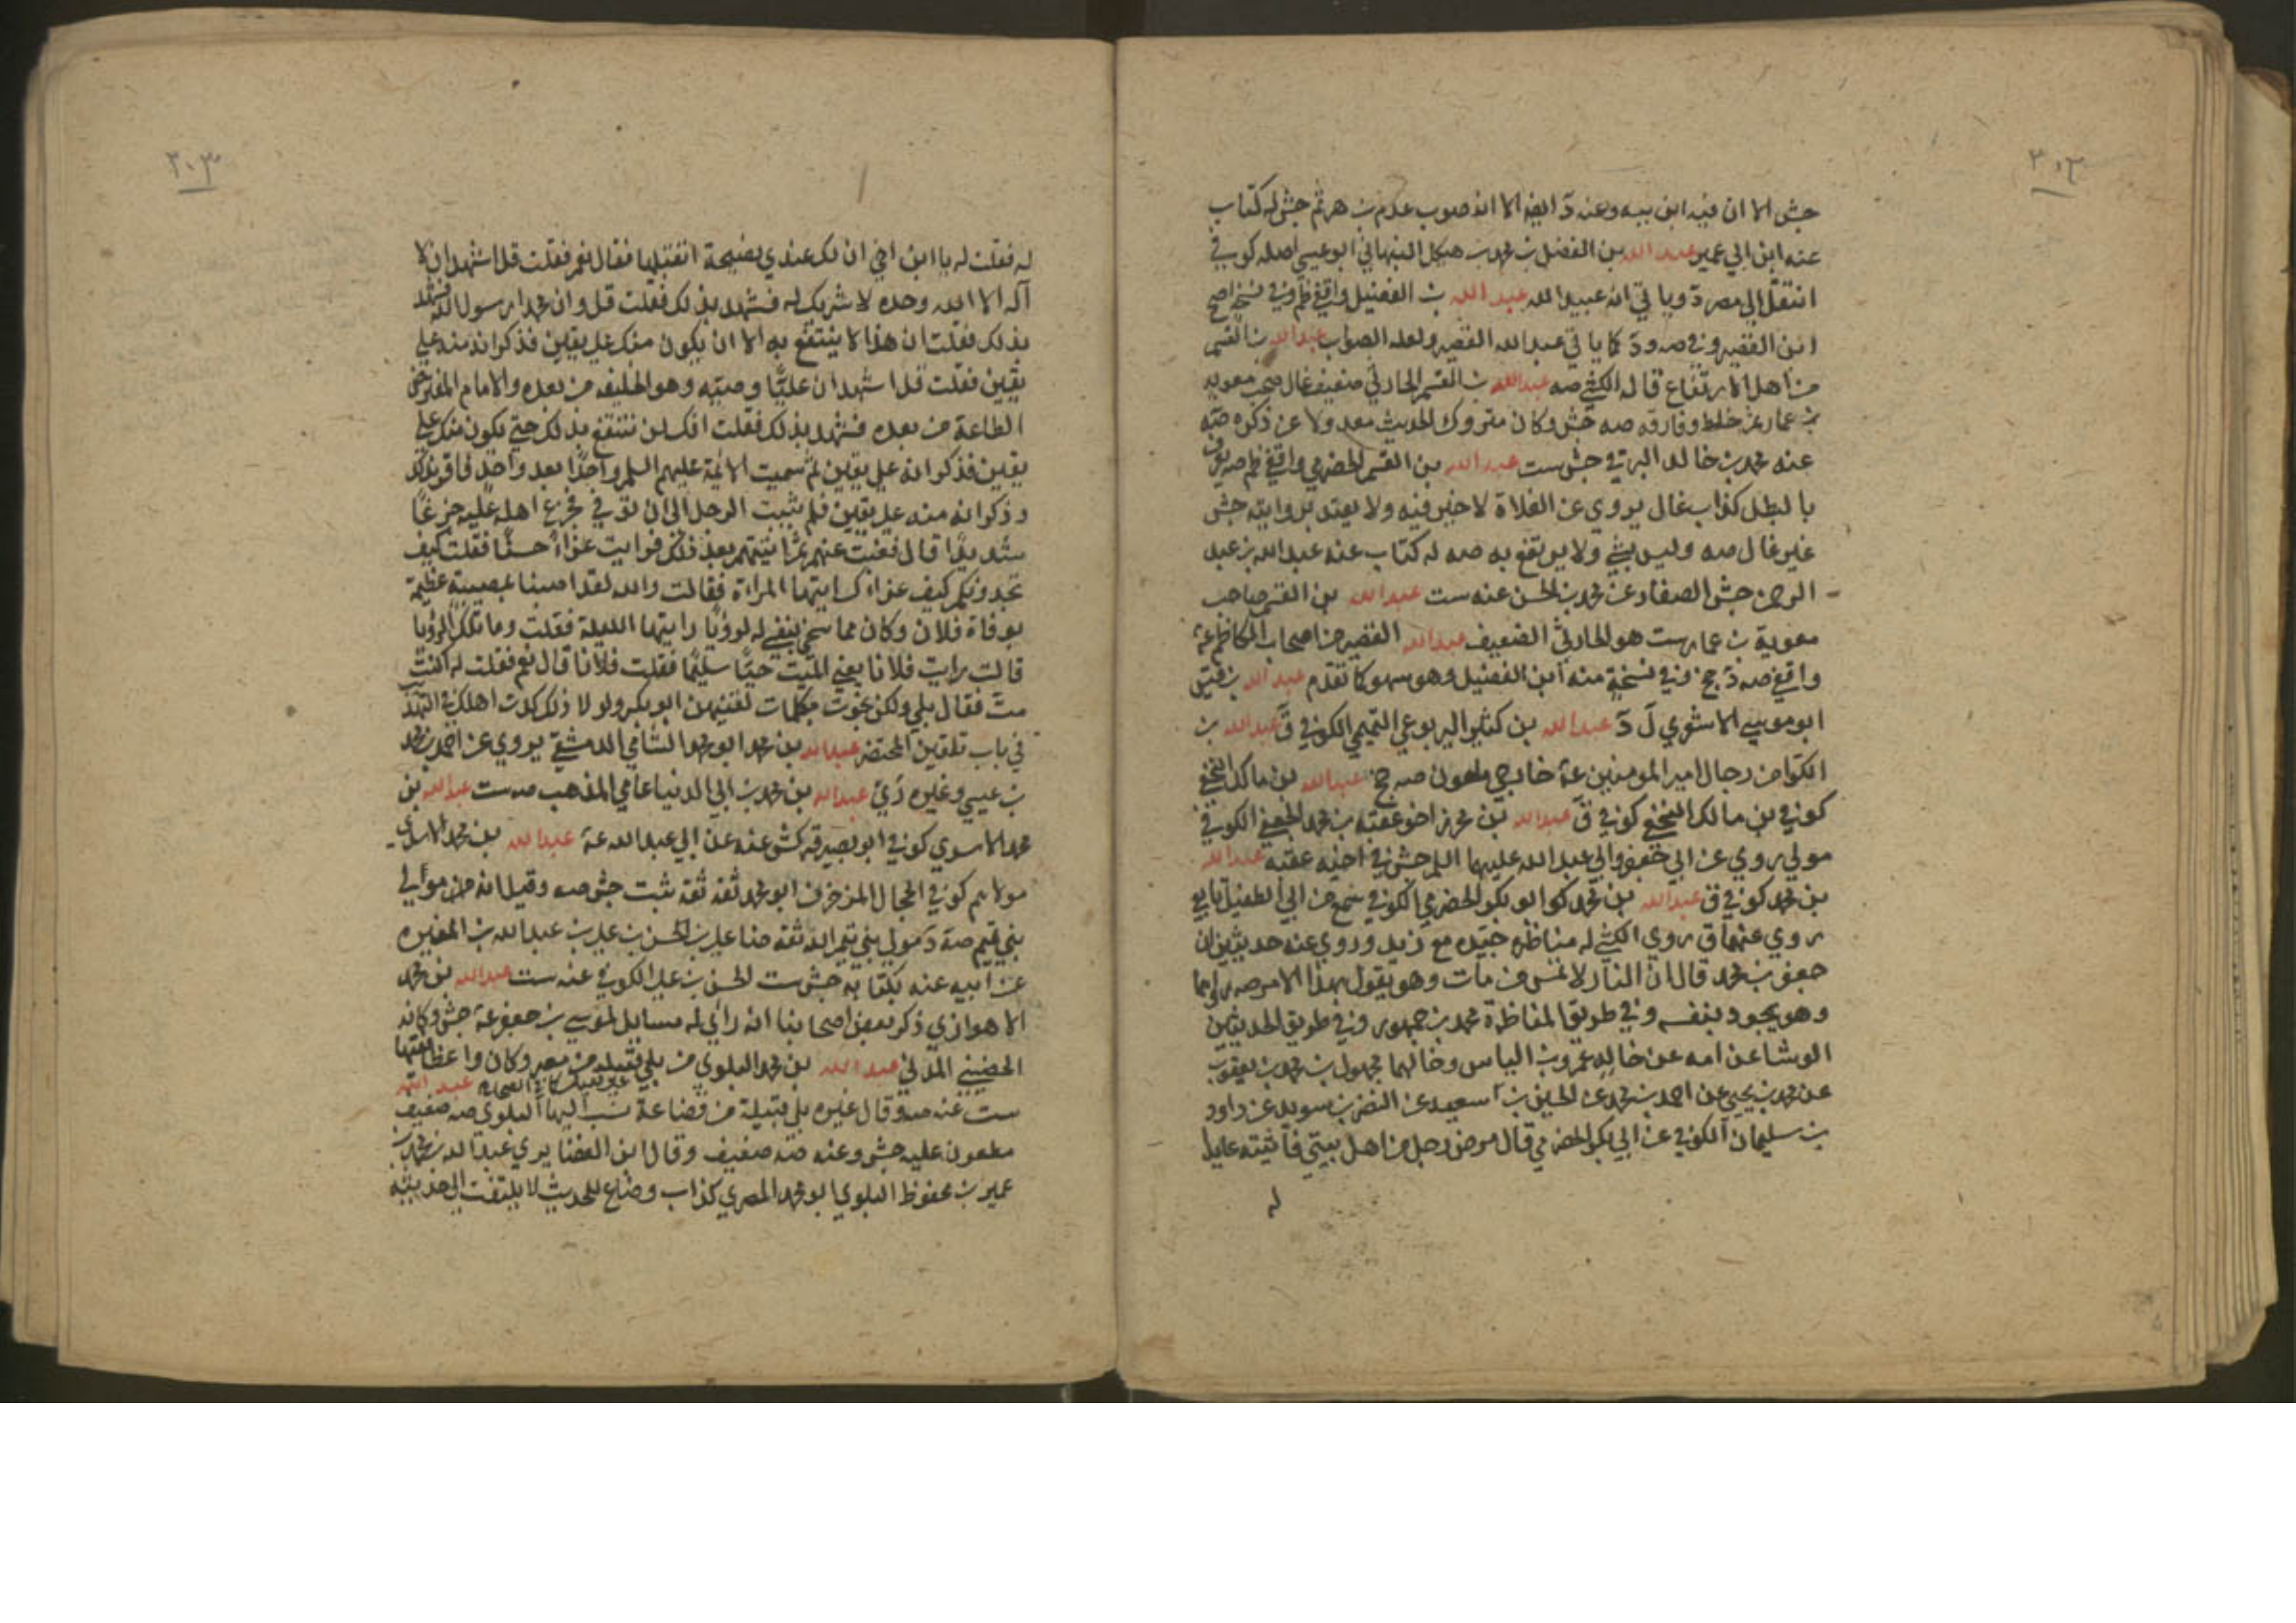 ٣٠٣
جش الا ان فيه ابن بيه وعند د ايضا الا انه صوب عدم بن هرثم جش له كتاب
عنه ابن ابي عمير عبد الله بن الفضل بن محمد بن هيكل النبهاني ابو عيسى اصله كوفي
انتقل الى مصر د ويا تي انه عبيد الله عبد الله بن الفضيل واقفي ظم وفي نسخة اصح
ابن القصير وفي صه ود كما ياتي عبد الله القصير ولعله الصواب عبد الله بن القسم
من اهل الارتفاع قاله الكشي صه عبد الله بن القسم الحارثي ضعيف غال صحب معويه
بن عمار ثم خلط وفارقه صه جش وكان متروك الحديث معد ولا عن ذكره صه
عنه محمد بن خالد البرقي جش ست عبد الله بن القسم الحضرمي واقفي ظم صه يعرف
بالبطل كذاب غال يروي عن الغلاة لا خير فيه ولا يعتد بروايته جش
غير غال صه وليس بشي ولا يرتفع به صه له كتاب عنه عبد الله بن عبد
الرحمن جش الصفار عن محمد بن الحسن عنه ست عبد الله بن القسم صاحب
معوية بن عمار ست هو الحارثي الضعيف عبد الله القصير من اصحاب الكاظم عة
واقفي صه د جخ وفي نسخة منه ابن الفضيل وهو سهو كما تقدم عبد الله بن قيس
ابو موسى الاشعري ل د عبد الله بن كثير اليربوعي التميمي الكوفي ق عبد الله بن
الكوا من رجال امير المومنين عة خارجي ملعون صه جخ عبد الله بن مالك النخعي
كوفي بن مالك النخعي كوفي ق عبد الله بن محرز اخو عقبة بن محمد الجعفي الكوفي
مولى روي عن ابي جعفر وابي عبد الله عليهما السلم جش في اخيه عقبة عبد الله
بن محمد كوفي ق عبد الله بن محمد كوا ابو بكر الحضرمي الكوفي سمع من ابي الطفيل تابعي
روي عنهما ق روي الكشي له مناظرة جيدة مع زيد وروي عنه حديثين ان
جعفر بن محمد قال ان النار لا تمس من مات وهو يقول بهذا الامر صه
وهو يجود بنفسه وفي طريق المناظرة محمد بن جمهور وفي طريق الحديثين
الوشا عن امه عن خاله عمرو بن الياس وخالهما مجهول بن محمد بن يعقوب
عن محمد بن يحيى عن احمد بن محمد عن الحسين بن سعيد عن النضر بن سويد عن داود
بن سليمان الكوفي عن ابي بكر الحضرمي قال مرض رجل من اهل بيتي فاتيته عايدا
له
٣٠٣
له فقلت له يا ابن اخي ان لك عندي نصيحة اتقبلها فقال نعم فقلت قل اشهد ان لا
آله الا الله وحده لا شريك له فشهد بذلك فقلت قل وان محمدا رسول الله فشهد
بذلك فقلت ان هذا لا ينتفع به الا ان يكون منك على يقين فذكر انه منه على
يقين فقلت قل اشهد ان عليّا وصيه وهو الخليفه من بعده والامام المفترض
الطاعة من بعده فشهد بذلك فقلت انك لن تنتفع بذلك حتى يكون منك على
يقين فذكر انه على يقين ثم سميت الائمة عليهم السلم واحدًا بعد واحد فاقر بذلك
وذكر انه منه على يقين فلم يثبت الرجل الى ان توفي فجزع اهله عليه جزعًا
شديدًا قال فغبت عنهم ثم اتيتهم بعد ذلك فرايت عزاءً حسنًا فقلت كيف
تجدونكم كيف عزاءك ايتها المراءة فقالت والله لقد اصبنا بمصيبة عظيمة
بوفاة فلان وكان مما سخى بنفسي له لرؤيا رايتها الليلة فقلت وما تلك الرؤيا
قالت رايت فلانا يعني الميت حيًا سليمًا فقلت فلانا قال نعم فقلت له اكنت
متّ فقال بلى ولكن نجوت بكلمات لقنيهن ابو بكر ولولا ذلك كدت اهلك في التهذيب
في باب تلقين المحتضر عبد الله بن محمد ابو محمد الشامي الدمشقي يروي عن احمد بن محمد
بن عيسى وغيره رَيَ عبد الله بن محمد بن ابي الدنيا عامي المذهب صه ست عبد الله بن
محمد الاسدي كوفي ابو بصير قر كش عنه عن ابي عبد الله عة عبد الله بن محمد الاسدي
مولاهم كوفي الحجال المزخرف ابو محمد ثقة ثقة ثبت جش صه وقيل انه من موالي
بني تيم صه د مولى بني تيم الله ثقة ضا علي بن الحسن بن علي بن عبد الله بن المغيره
عن ابيه عنه بكتابه جش ست الحسن بن علي الكوفي عنه ست عبد الله بن محمد
الاهوازي ذكر بعض اصحابنا انه راى له مسايل لموسى بن جعفر عة جش وكانه
الحضيني المدني عبد الله بن محمد البلوي من بلي قبيله من مصر وكان واعظا فقيها
ست عنه صه وقال غيره بلي قبيلة من قضاعة نسب اليها البلوي صه ضعيف
مطعون عليه جش وعنه صه ضعيف وقال ابن الغضايري عبد الله بن محمد بن
عمير بن محفوظ البلوي ابو محمد المصري كذاب وضاع للحديث لا يلتفت الى حديثه